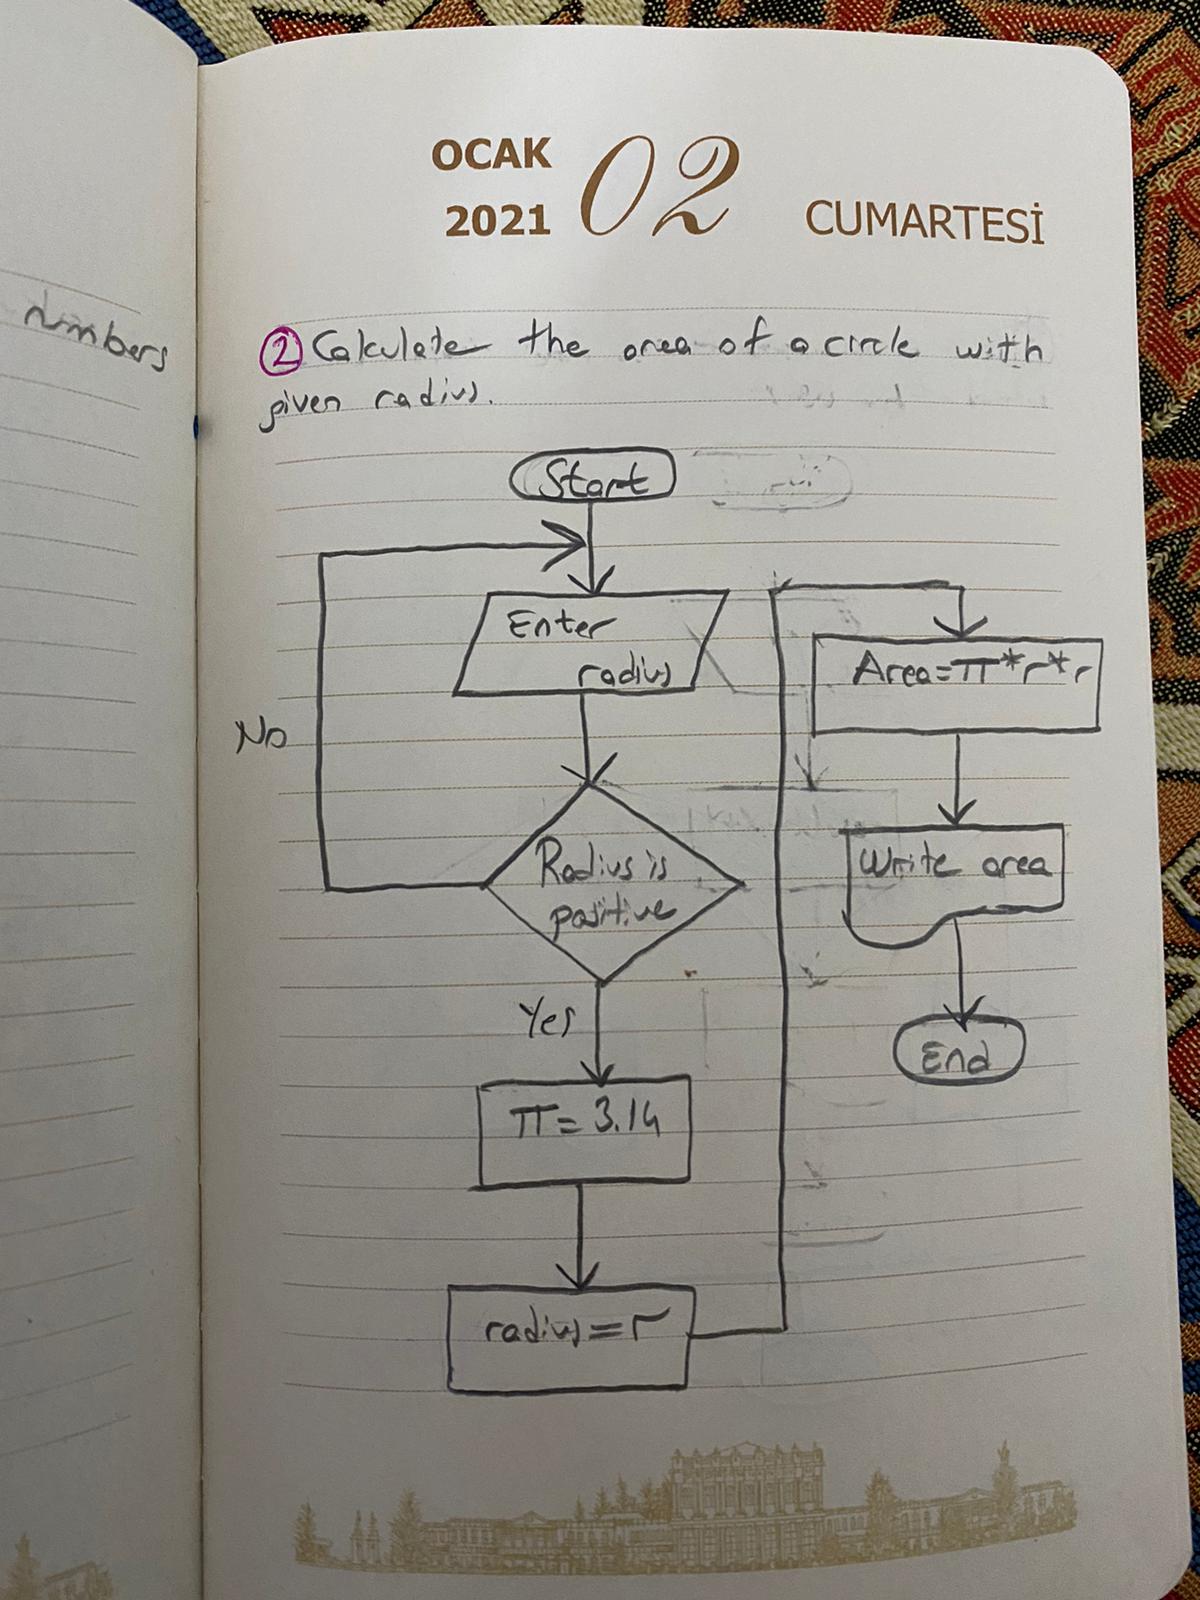 numbers
OCAK
2021
02
CUMARTESİ
2 Calculate the area of a circle with
given radius.
Start
Enter
radius
No
Radius is
positive
Yes
π = 3.14
radius = r
Area = π * r * r
Write area
End